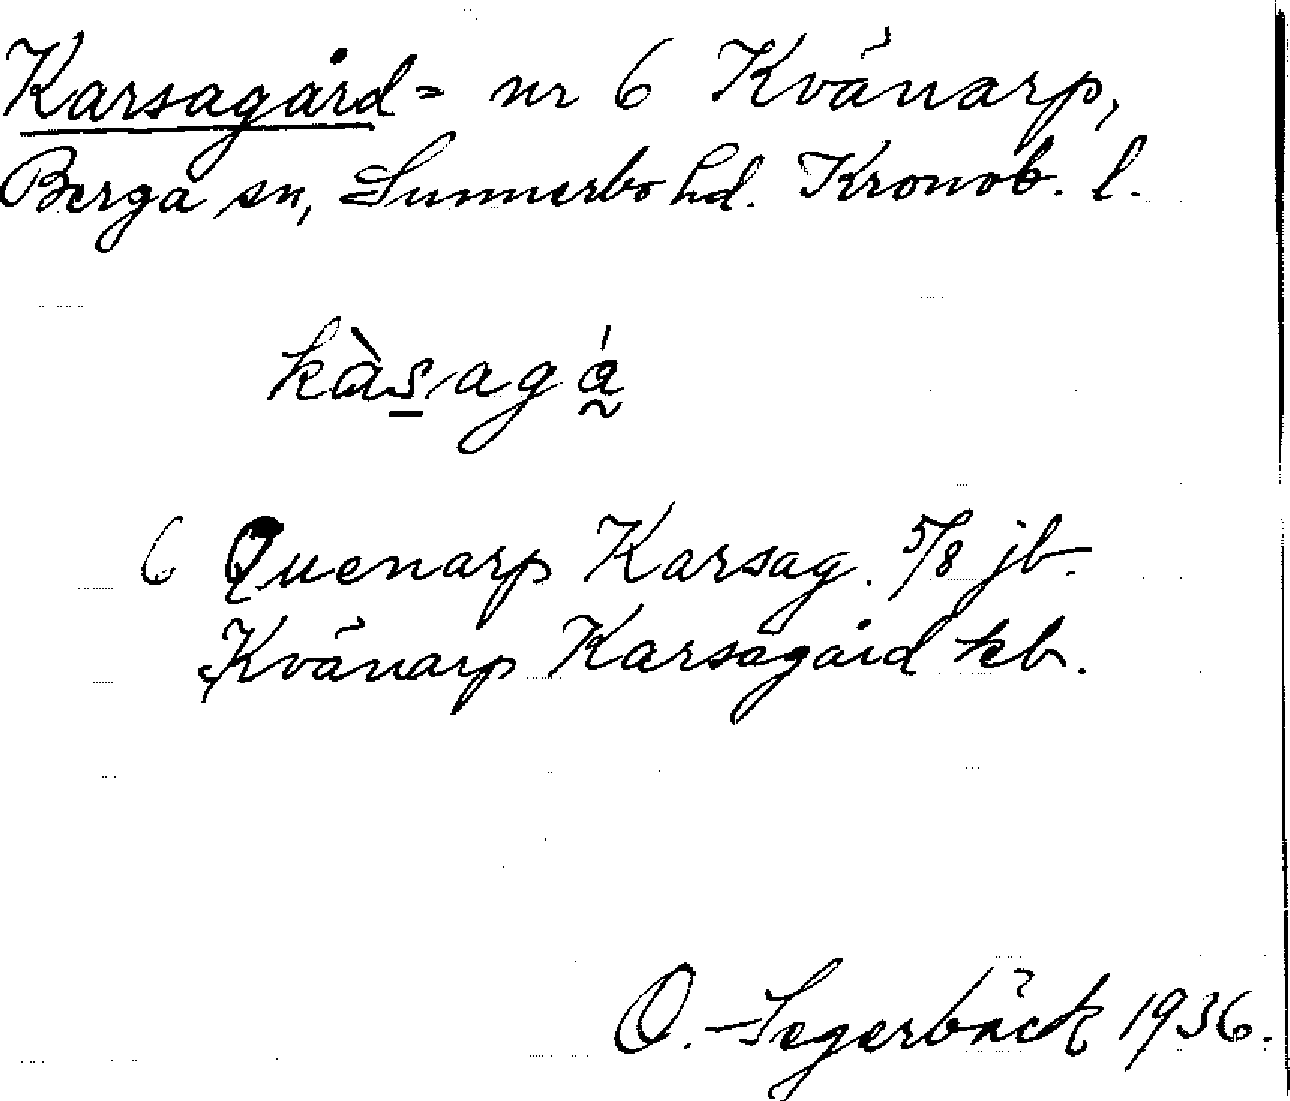 Karsagård = nr 6 Kvänarp,
Berga sn, Sunnerbo hd. Kronob. l.
kàsagá
6 Quenarp Karsag. 5/8 jb.
Kvänarp Karsagård kb.
O. Segerbäck 1936.